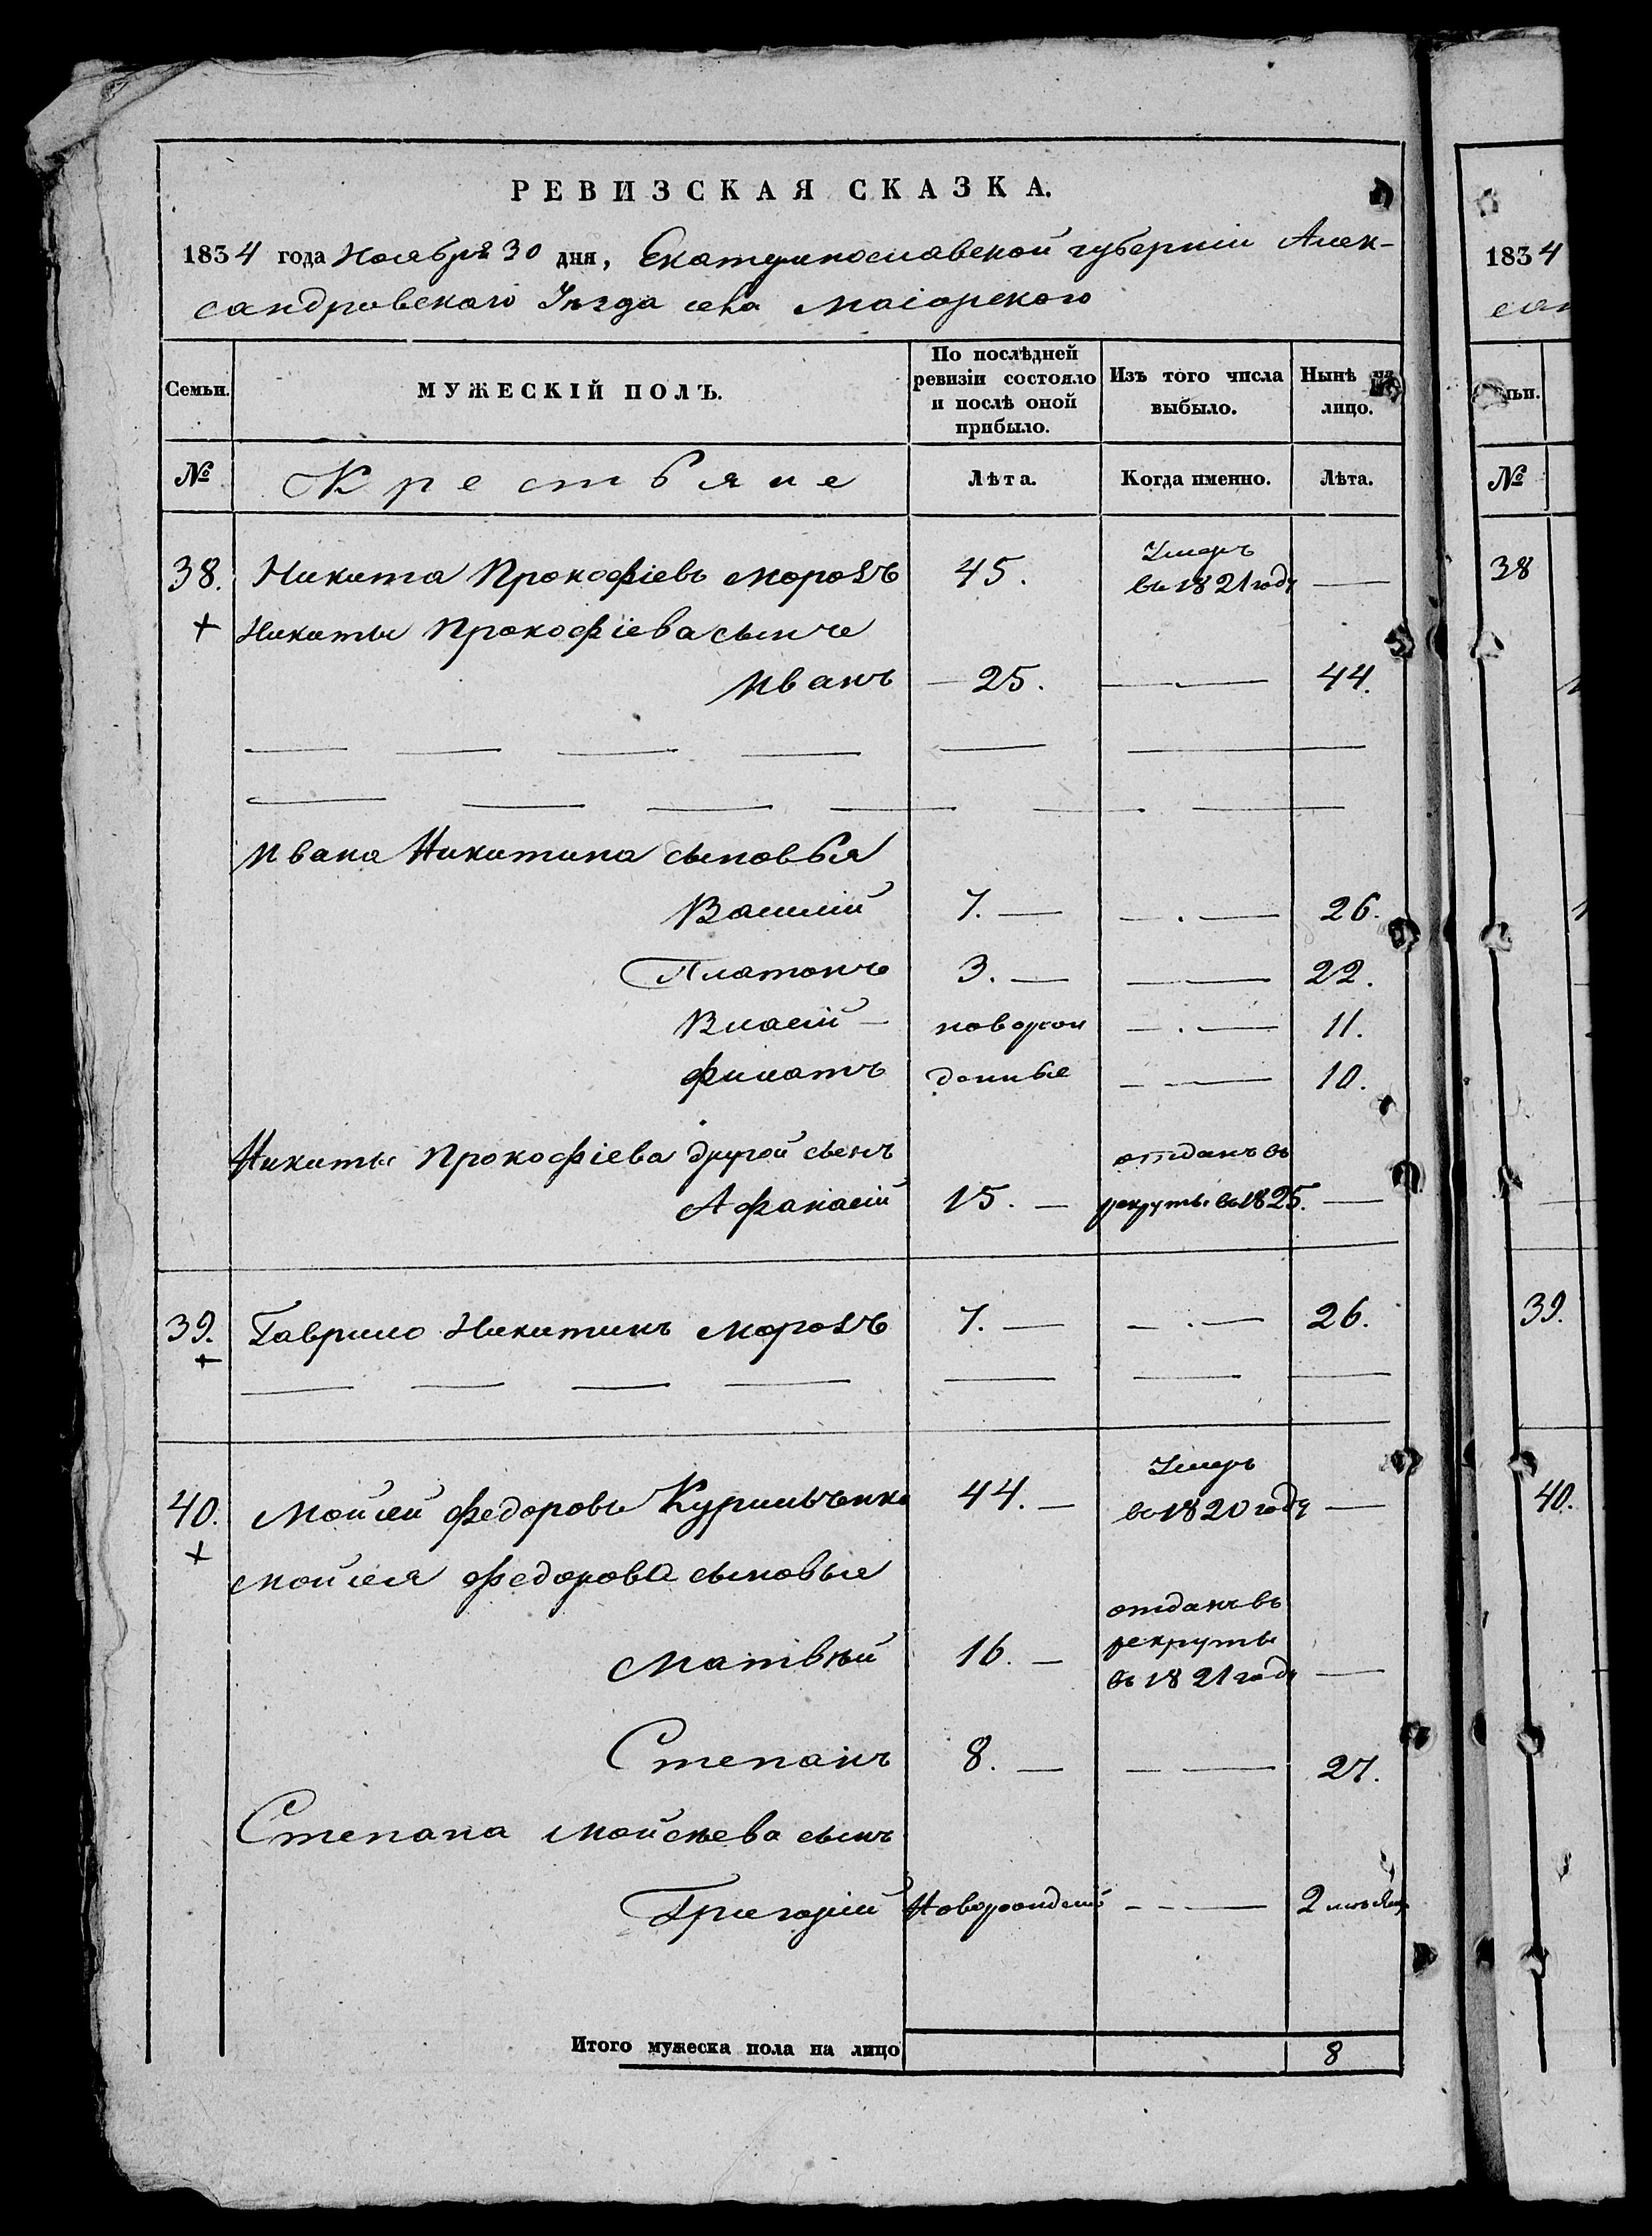 РЕВИЗСКАЯ СКАЗКА.
1834 года Ноября 30 дня, Екатеринославской губерніи Алек-
сандровскаго Уѣзда села Маіорского
Семьи. МУЖЕСКІЙ ПОЛЪ. По послѣдней ревизіи состояло и послѣ оной прибыло. Изъ того числа выбыло. Нынѣ на лицо.
№ Крестьяне Лѣта. Когда именно. Лѣта.
38. Никита Прокофіевъ Морозъ 45. Умеръ въ 1821 году —
+ Никиты Прокофіева сынъ
Иванъ — 25. — 44.
Ивана Никитина сыновья
Василій 7. — — . — 26.
Платонъ 3. — — 22.
Власій — новорож — . — 11.
Филатъ денные — — 10.
Никиты Прокофіева другой сынъ отданъ въ
Афанасій 15. — рекруты въ 1825. —
39. Гаврило Никитинъ Морозъ 7. — — . — 26.
+
40. Мойсей Федоровъ 44. — Умеръ въ 1820 году —
+ Мойсея Федорова сыновья
Матвѣй 16. — отданъ въ рекруты въ 1821 году —
Степанъ 8. — — — 27.
Степана Мойсѣева сынъ
Григорій Новорожден — — — 2 мѣсяц
Итого мужеска пола на лицо 8
1834
сан
ьи.
№
38
39.
40.